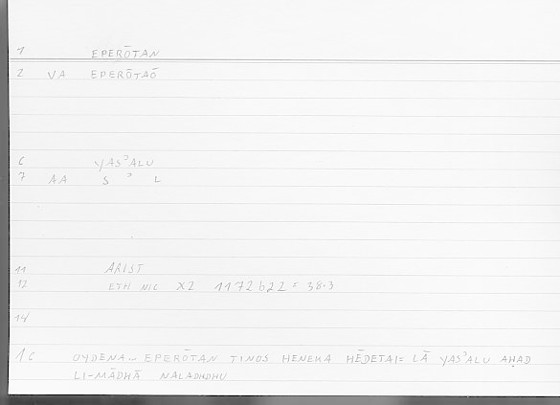 1 EPERŌTAN
2 VA EPERŌTAŌ
6 YAS³ALU
7 AA S ³ L
11 ARIST
12 ETH NIC X2 1172b22 = 38.3
14
16 OYDENA... EPERŌTAN TINOS HENEKA HĒDETAI= LĀ YAS³ALU AḤAD
LI-MĀDHĀ NALADHDHU